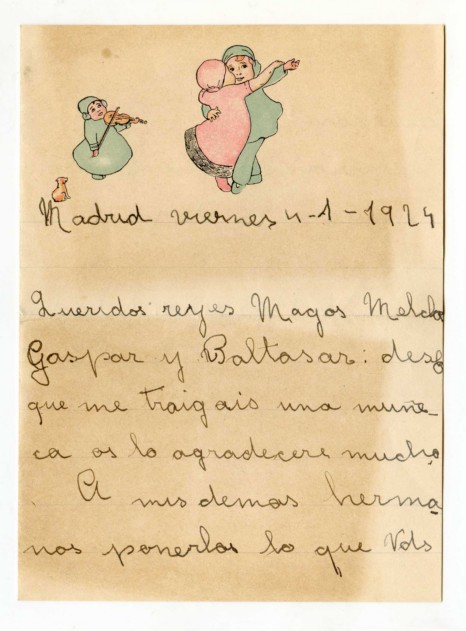 Madrid viernes 4-1-1924
Queridos reyes Magos Melcho
Gaspar y Baltasar: deseo
que me traigais una muñe-
ca os lo agradecere mucho,
A mis demas herma
nos ponerlos lo que Vds